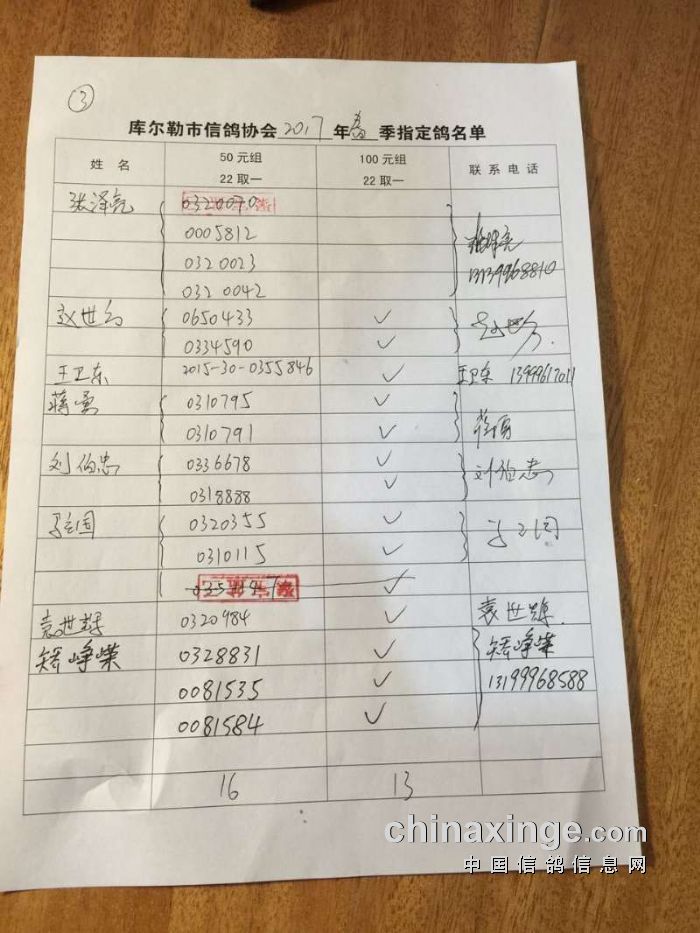 ③
库尔勒市信鸽协会 2017 年 春 季指定鸽名单
姓 名 50元组 22取一 100元组 22取一 联系电话
张泽亮 0320070
0005812
0320023 张泽亮
0320042 13139968810
赵世方 0650433 ✓ 赵世方
0334590 ✓
王卫东 2015-30-0355846 ✓ 王卫东 13999617011
蒋勇 0310795 ✓ 蒋勇
0310791 ✓
刘伯忠 0336678 ✓ 刘伯忠
0318888 ✓
0320355 ✓
0310115 ✓
✓
袁世辉 0320984 ✓ 袁世辉
矫峥荣 0328831 ✓ 矫峥荣
0081535 ✓ 13199968588
0081584 ✓
16 13
chinaxinge.com
中国信鸽信息网